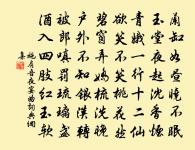 蘭缸如晝曉不眠
玉堂夜起沈香煙
青娥一行十二仙
欲笑不笑桃花然
碧窗弄嬌梳洗晚
戶外不知銀漢轉
被郎嗔罰琉璃盞
酒入四肢紅玉軟
施肩吾夜宴曲詞典網